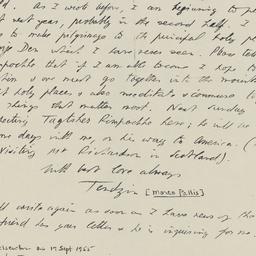 ld. As I wrote before, I am beginning to p
t next year, probably in the second half. I
to make pilgrimage to the principal holy p
Den which I have never seen. Please tell
that if I am able to come I hope t
we must go together into the mount
it holy places & also meditate &
things that matter most. Next Sunday
Rimpoche here; he will
me days with me, on his way to America. (
visiting not Richardson in Scotland).
With best love always
Tendzin [MARCO PALLIS]
ll write again as soon as I have news of tha
friend he gives letter & he is inquiring for
on 17 Sept 1955